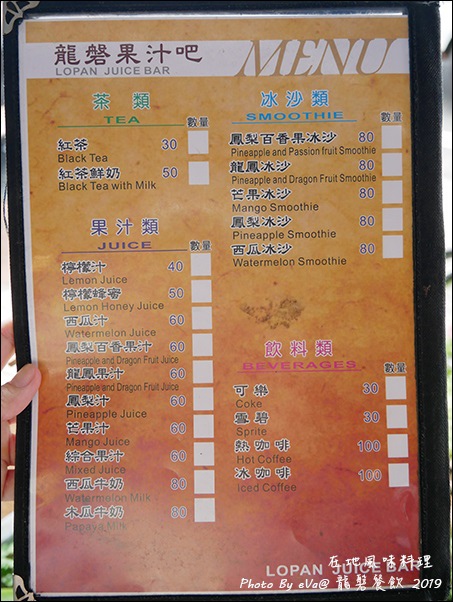 龍磐果汁吧
LOPAN JUICE BAR
MENU
茶類
TEA
數量
紅茶 30
Black Tea
紅茶鮮奶 50
Black Tea with Milk
果汁類
JUICE
數量
檸檬汁 40
Lemon Juice
檸檬蜂蜜 50
Lemon Honey Juice
西瓜汁 60
Watermelon Juice
鳳梨百香果汁 60
Pineapple and Dragon Fruit Juice
龍鳳果汁 60
Pineapple and Dragon Fruit Juice
鳳梨汁 60
Pineapple Juice
芒果汁 60
Mango Juice
綜合果汁 60
Mixed Juice
西瓜牛奶 80
Watermelon Milk
木瓜牛奶 80
Papaya Milk
冰沙類
SMOOTHIE
數量
鳳梨百香果冰沙 80
Pineapple and Passion fruit Smoothie
龍鳳冰沙 80
Pineapple and Dragon Fruit Smoothie
芒果冰沙 80
Mango Smoothie
鳳梨冰沙 80
Pineapple Smoothie
西瓜冰沙 80
Watermelon Smoothie
飲料類
BEVERAGES
數量
可樂 30
Coke
雪碧 30
Sprite
熱咖啡 100
Hot Coffee
冰咖啡 100
Iced Coffee
LOPAN JUICE BAR
在地風味料理
Photo By eVa@ 龍磐餐飲 2019